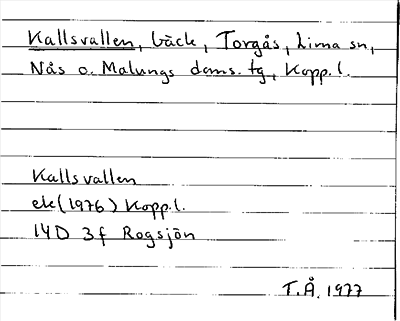 Kallsvallen, bäck, Torgås, Lima sn,
Nås o. Malungs doms. tg, Kopp. l.
Kallsvallen
ek (1976) Kopp. l.
14D 3f Rogsjön
T.Å. 1977